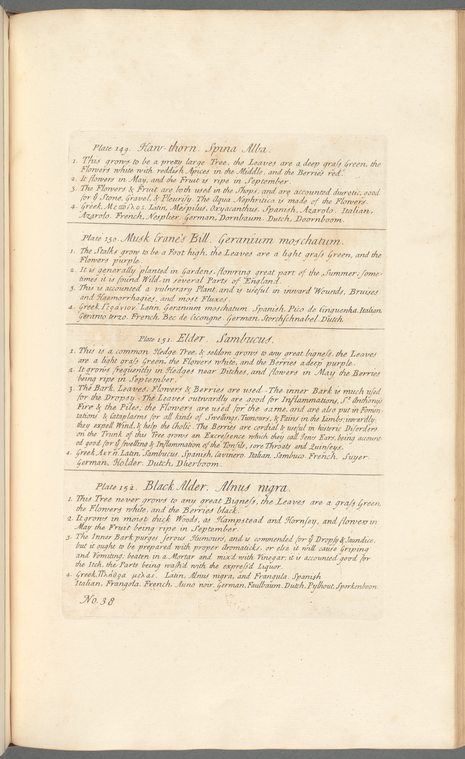 Plate 149. Haw-thorn. Spina Alba.
1. This grows to be a pretty large Tree, the Leaves are a deep graſs Green, the
Flowers white with reddish Apices in the Middle, and the Berries red.
2. It flowers in May, and the Fruit is ripe in September.
3. The Flowers & Fruit are both used in the Shops, and are accounted diuretic, good
for ye Stone, Gravel, & Pleurisy. The Aqua Nephritica is made of the Flowers.
4. Greek, Latin, Mespilus, Oxyacanthus. Spanish, Azarolo. Italian,
Azarolo. French, Nespher. German, Dornbaum. Dutch, Doornboom.
Plate 150. Musk Crane's Bill. Geranium moschatum.
1. The Stalks grow to be a Foot high, the Leaves are a light graſs Green, and the
Flowers purple.
2. It is generally planted in Gardens, flowring great part of the Summer; some-
times it is found Wild, in several Parts of England.
3. This is accounted a vulnerary Plant, and is useful in inward Wounds, Bruises
and Haemorrhagies, and most Fluxes.
4. Greek, Latin, Geranium moschatum. Spanish, Pico de cinguenha. Italian,
Geranio terzo. French, Bec de Cicongne. German, Storchschnabel. Dutch
Plate 151. Elder. Sambucus.
1. This is a common Hedge Tree, & seldom grows to any great bigneſs, the Leaves
are a light graſs Green, the Flowers white, and the Berries a deep purple.
2. It grows frequently in Hedges near Ditches, and flowers in May the Berries
being ripe in September.
3. The Bark, Leaves, Flowers & Berries are used. The inner Bark is much used
for the Dropsy. The Leaves outwardly are good for Inflammations, St Anthony's
Fire & the Piles, the Flowers are used for the same, and are also put in Fomen
tations & Cataplasms for all kinds of Swellings, Tumours, & Pains in the Limbs; inwardly
they expell Wind, & help the Cholic. The Berries are cordial & useful in histeric Disorders
on the Trunk of this Tree grows an Excrescence which they call Jews Ears, being account
ed good for ye swelling & Inflammation of the Tonsils, sore Throats and Quinseys.
4. Greek, Latin, Sambucus. Spanish, Savinero. Italian, Sambuco. French, Suyer.
German, Holder. Dutch, Dherboom.
Plate 152. Black Alder. Alnus nigra.
1. This Tree never grows to any great Bigneſs, the Leaves are a graſs Green,
the Flowers white, and the Berries black.
2. It grows in moist thick Woods, as Hampstead and Hornsey, and flowers in
May the Fruit being ripe in September.
3. The Inner Bark purges serous Humours, and is commended for ye Dropsy & Jaundice,
but it ought to be prepared with proper Aromaticks, or else it will cause Griping
and Vomiting; beaten in a Mortar and mixd with Vinegar, it is accounted good for
the Itch, the Parts being washd with the expreſsd Liquor.
4. Greek, Latin, Alnus nigra, and Frangula. Spanish
Italian, Frangola. French, Auno noir. German, Faulbaum. Dutch, Pylhout, Sporkenboom.
No. 38